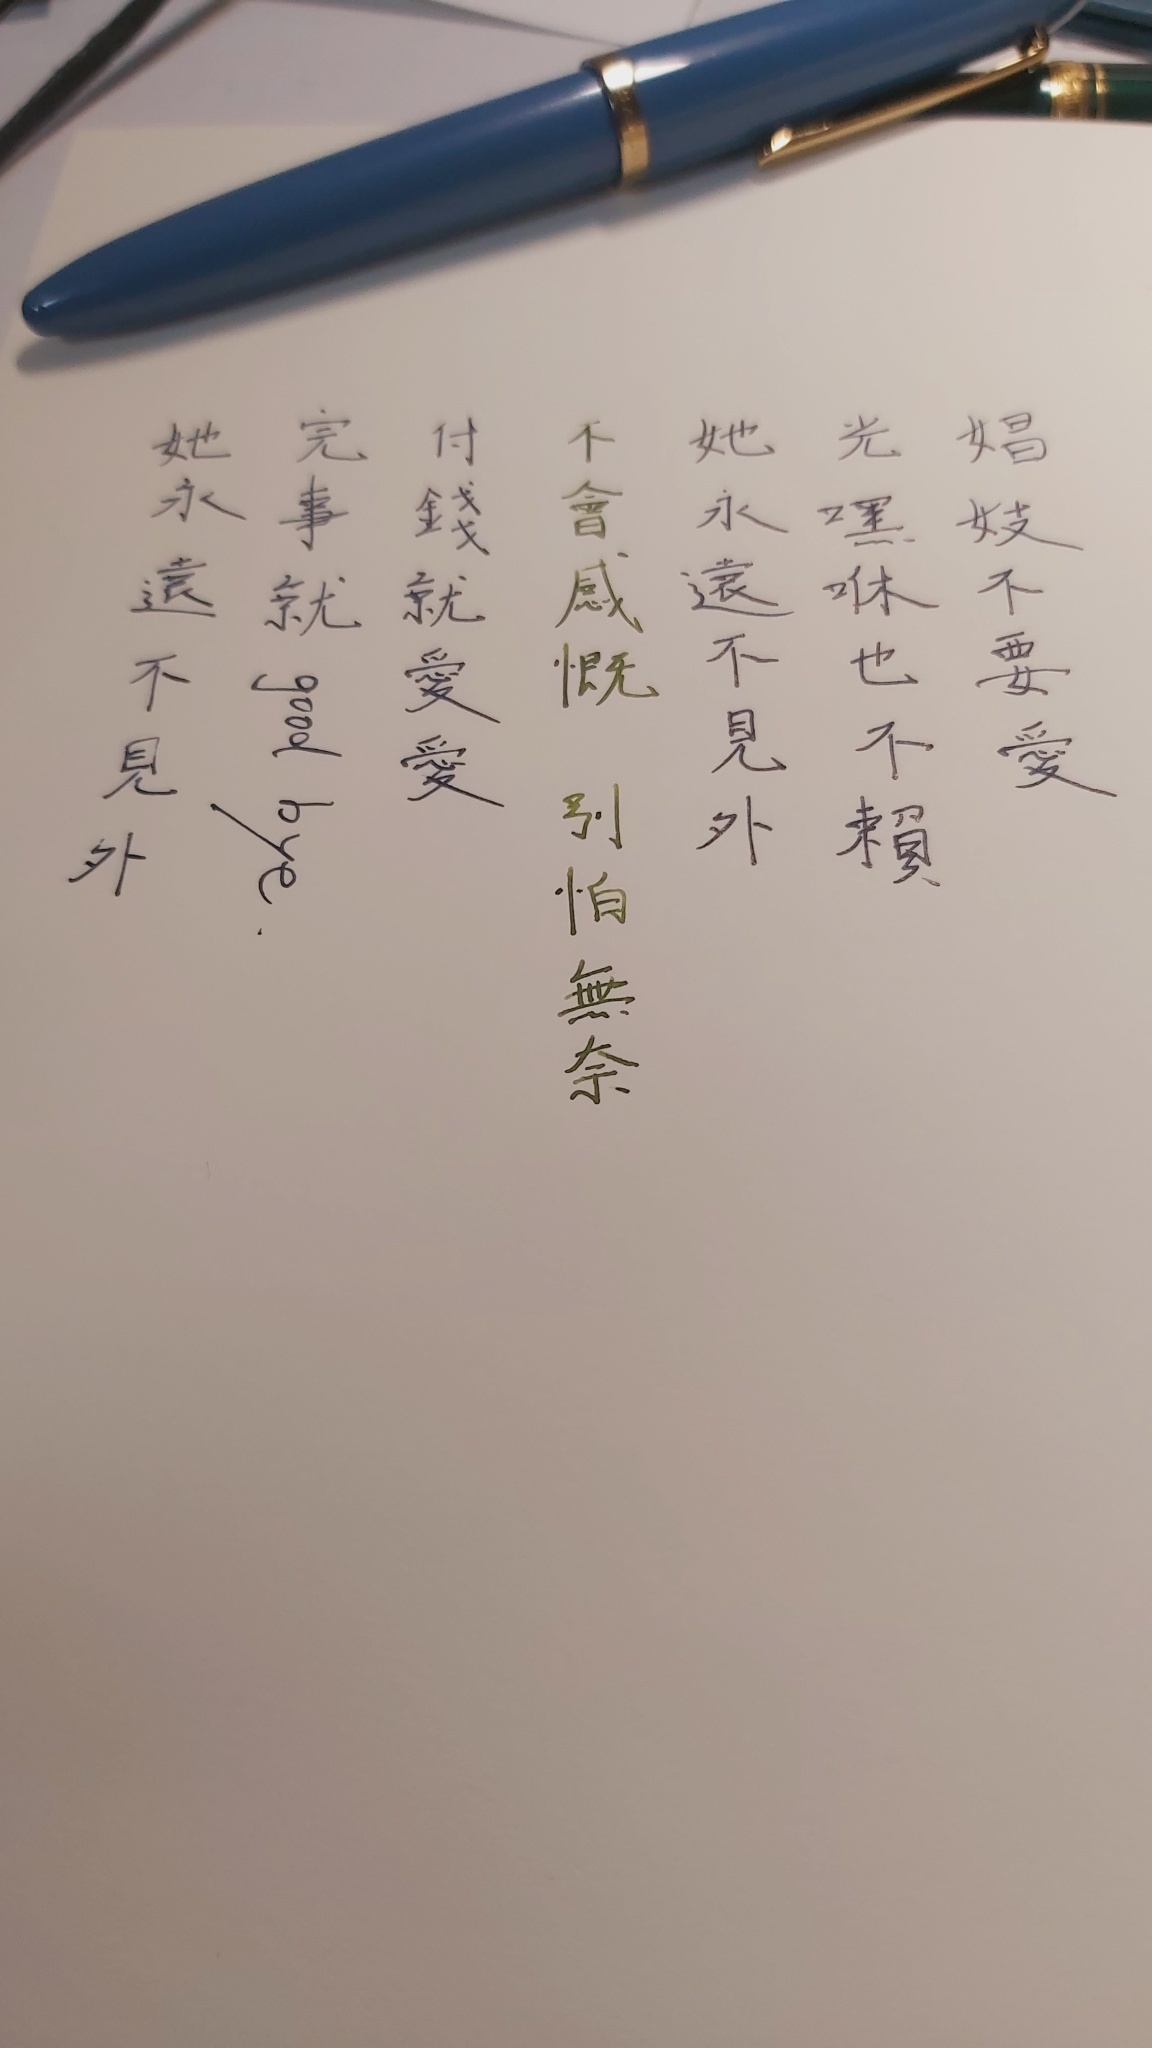 娼妓不要愛
光嘿咻也不賴
她永遠不見外
不會感慨 別怕無奈
付錢就愛愛
完事就 good bye.
她永遠不見外